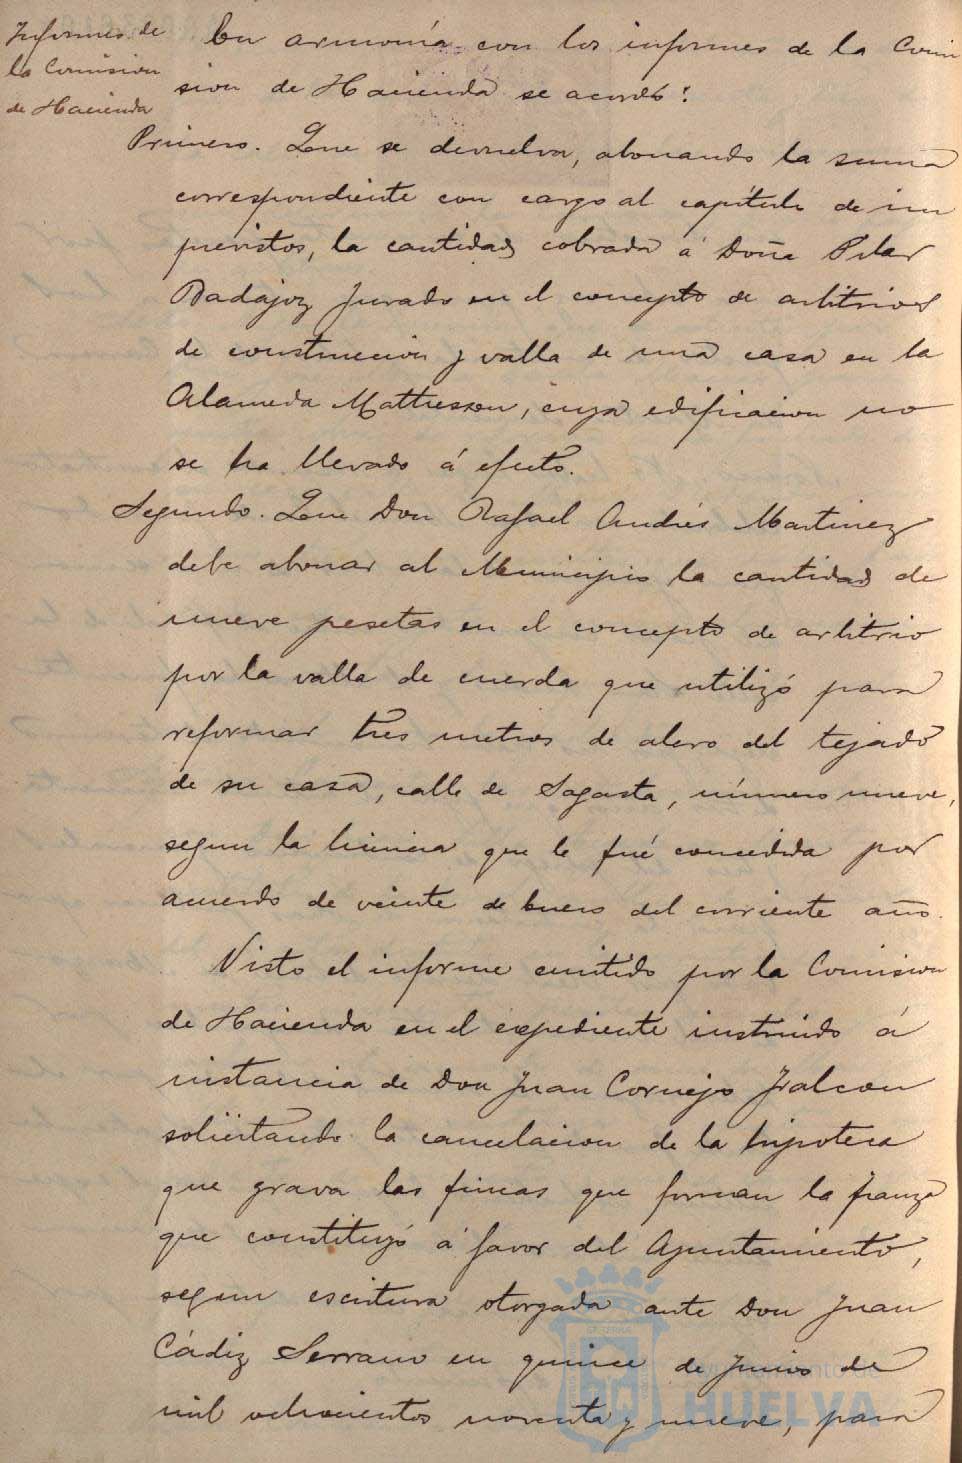 Informes de
la Comision
de Hacienda
En armonía con los informes de la Comi
sion de Hacienda se acordó:
Primero. Que se devuelva, abonando la suma
correspondiente con cargo al capítulo de im
previstos, la cantidad cobrada á Doña Pilar
Badajoz Jurado en el concepto de arbitrios
de construccion y valla de una casa en la
Alameda Mathesson, cuya edificacion no
se ha llevado á efecto.
Segundo. Que Don Rafael Andrés Martinez
debe abonar al Municipio la cantidad de
nueve pesetas en el concepto de arbitrio
por la valla de cuerda que utilizó para
reformar tres metros de alero del tejado
de su casa, calle de Sagasta, número nueve,
segun la licencia que le fué concedida por
acuerdo de veinte de Enero del corriente año.
Visto el informe emitido por la Comision
de Hacienda en el expediente instruido á
instancia de Don Juan Cornejo Jralcon
solicitando la cancelacion de la hipoteca
que grava las fincas que forman la fianza
que constituyó á favor del Ayuntamiento,
segun escritura otorgada ante Don Juan
Cádiz Serrano en quince de Junio de
mil ochocientos noventa y nueve, para
Ayuntamiento de
HUELVA